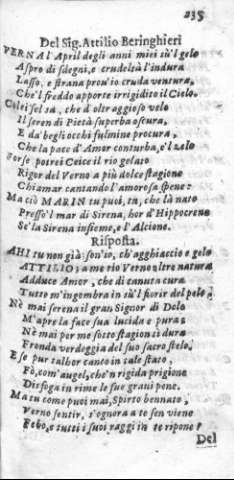 235
Del Sig. Attilio Beringhieri
PERNA l'April degli anni miei sù'l gelo
Aspro di sdegni, e crudeltà l'indura
Lasso, e strana pron'io cruda ventura,
Ch'e'l freddo apporte irrigidito il Cielo.
Colei sol sà, che d'oltraggioso velo
Il seren di Pietà superba oscura,
E da begli occhi fulmine procura,
Che la pace d'Amor conturba, e'l zelo
Forse potrei Ceice il rio gelato
Rigor del Verno a più dolce stagione
Chiamar cantando l'amorosa spene:
Ma ciò MARIN tu puoi, tù, che là nato
Presso'l mar di Sirena, hor d'Hippocrene
Se'la Sirena insieme, e l'Alcione.
Risposta.
AHI tu non già: son'io, ch'agghiaccio e gelo
ATTILIO; a me rio Verno altre natura
Adduce Amor, che di canuta cura
Tutto m'ingombra in sù'l fiorir del pelo.
Nè mai serena il gran Signor di Delo
M'apre la face sua lucida e pura:
Nè mai per me sotto stagion sì dura
Fronda verdeggia del suo sacro stelo.
E se pur talhor canto in tale stato,
Fò, com'augel, che'n rigida prigione
Disfoga in rime le sue grani pene.
Ma tu come puoi mai, Spirto bennato,
Verno sentir, s'ognora a te sen viene
Febo, e tutti i suoi raggi in te ripone?
Del